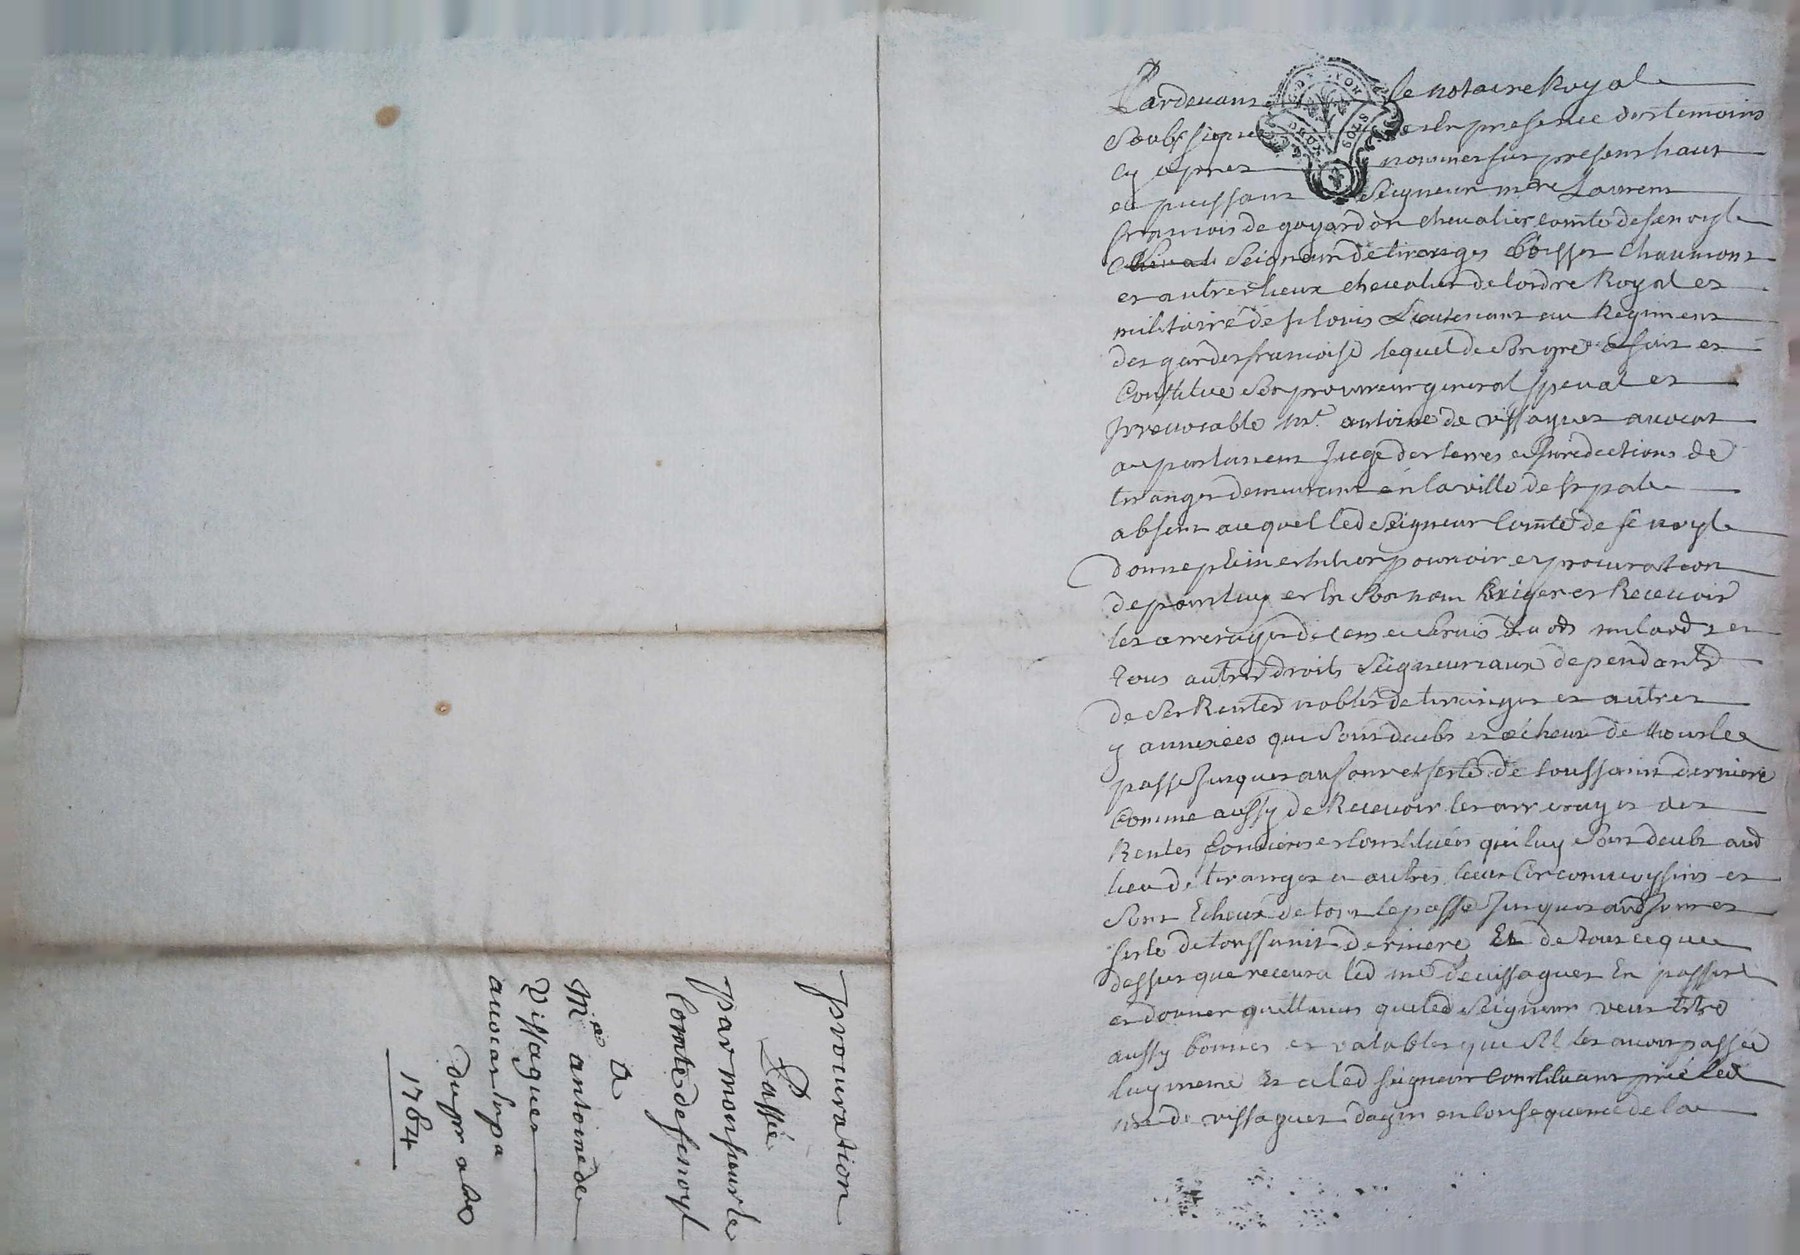 Pardevant le notaire Royal
Soubsigné et En presence des temoins
cy apres nommes fut present haut
et puissant Seigneur mre Laurent
francois de gayardon chevalier comte de fenoyl
Seigneur de tiranges boisset Chaumont
et autres lieux chevalier de lordre Royal et
militaire de st louis Lieutenant au Regiment
des gardes francoise lequel de son gre a fait et
Constitué Son procureur general special et
Irrevocable mr. antoine de vissaguet avocat
en parlement Juge des terres et Juredictions de
tiranges demeurant en la ville de st pal
absent auquel led Seigneur Comte de fenoyl
donne plein et Entier pouvoir et procuration
de pour luy et En Son nom Exiger et Recevoir
les arrerages de cens et servis lods milods et
tous autres droits Seigneuriaux dependants
de Ses Rentes nobles de tiranges et autres
y annexées qui sont deubs et echeus de tout le
passé Jusques au jour et feste de toussaint derniere
Comme aussy de Recevoir les arrerages des
Rentes foncieres et constituées qui luy sont deubs aud
lieu de tiranges et autres lieux circonvoysins et
Sont Echeus de tout le passé Jusques aud jour et
feste de toussaint derniere Et de tout ce que
dessus que recevra led mre de vissaguet En passer
et donner quittances que led Seigneur veut etre
aussy bonnes et valables que Sil les avoit passée
luy meme Et a led seigneur constituant prié led
mre de vissaguet dagir en consequence de la
procuration
Passée
par monsieur le
Comte de fenoyl
A
Mre antoine de
Vissaguet
avocat
1764